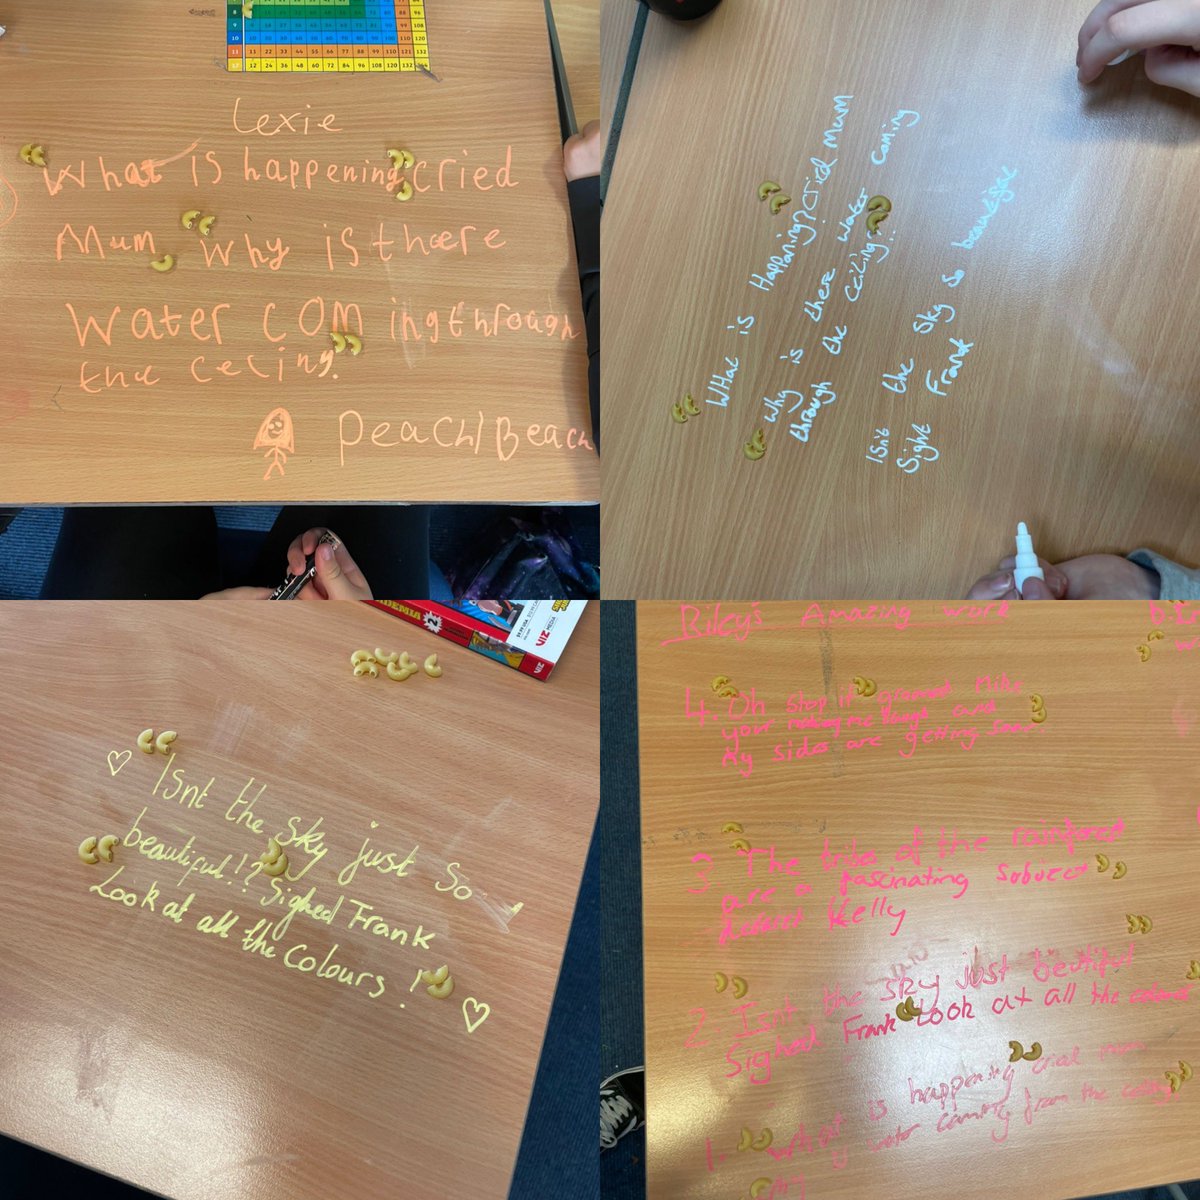 8
96
9
108
10
120
11 22 33 44 55 66 77 88 99 110 121 132
12 24 36 48 60 72 84 96 108 120 132 144
Lexie
What is happening cried
Mum Why is there
water coming through
the celing.
Peach/Beach
What is Happaning? cried mum
why is there water coming
through the ceiling!!
Isn't the sky so beautiful
Sight Frank
2
VIZ MEDIA
VIZ
Isnt the sky just so
beautiful!? Sighed Frank
Look at all the colours!
Riley's Amazing work
4. Oh stop it groaned
your making me laugh and
my sides are getting sour.
3. The tribe of the rainforest
are a fascinating subject
Kelly
2. Isnt the sky just beutiful
Sighed Frank Look at all the colours
1. what is happening cried mum
why water coming from the celing